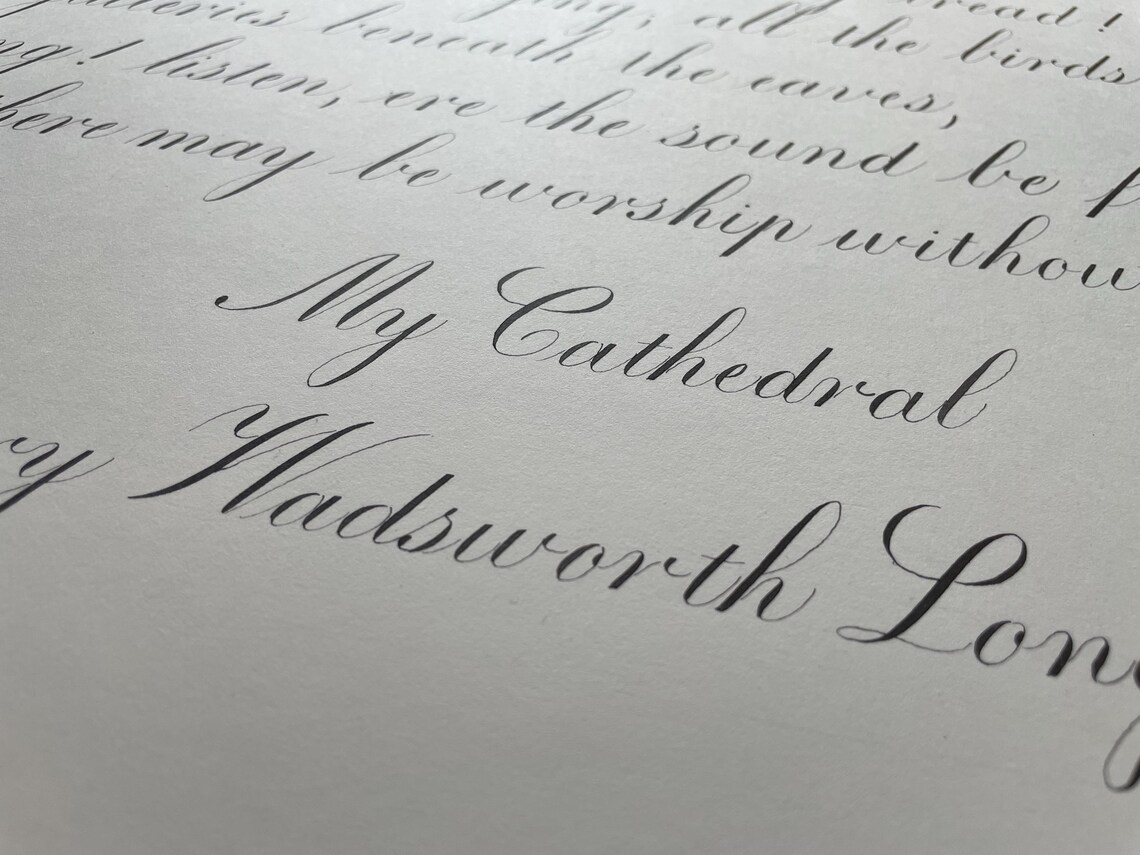 all the birds
galleries beneath the eaves,
listen, ere the sound be
there may be worship withou
My Cathedral
ry Wadsworth Long